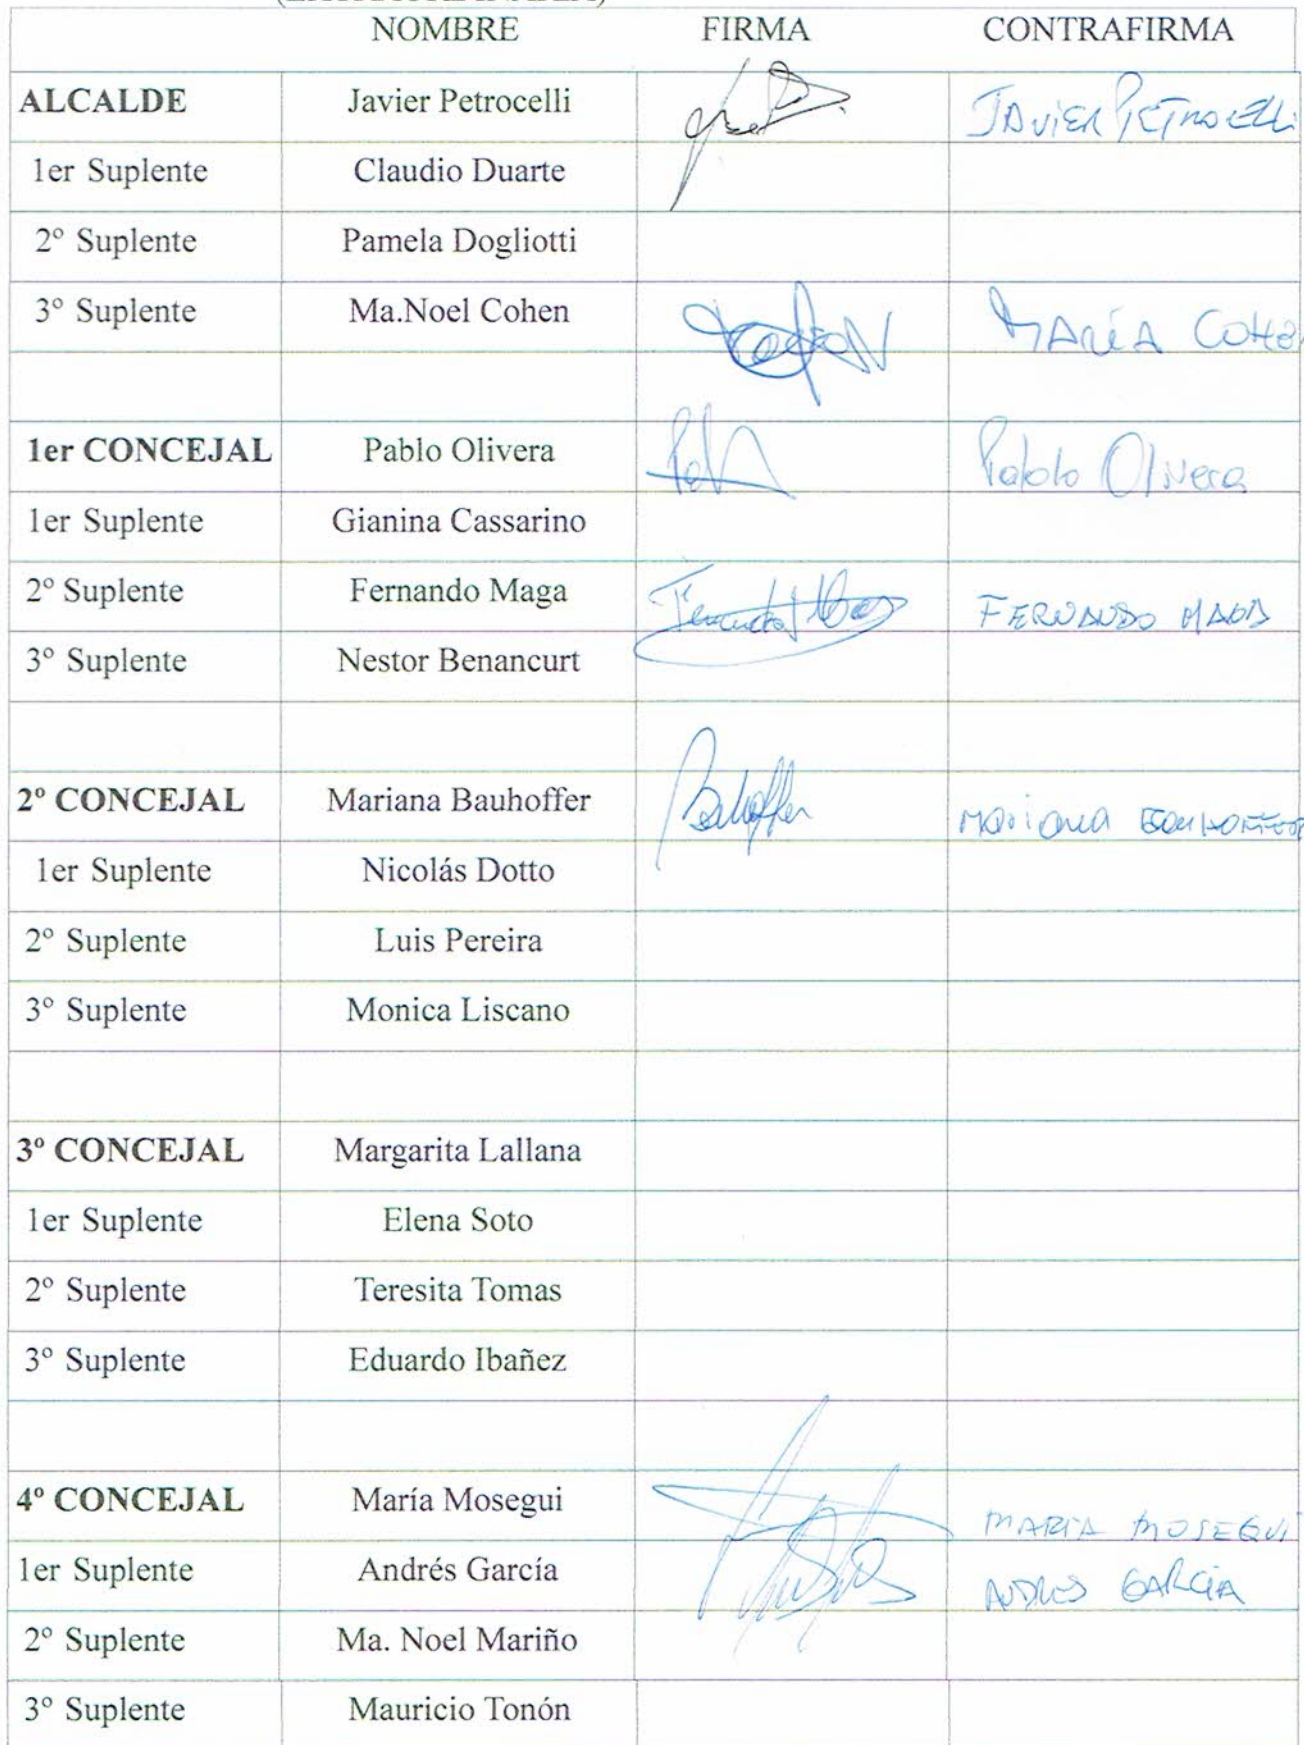 NOMBRE FIRMA CONTRAFIRMA
ALCALDE Javier Petrocelli JAViER PETROCELLi
1er Suplente Claudio Duarte
2º Suplente Pamela Dogliotti
3º Suplente Ma.Noel Cohen MARÍA COHEN
1er CONCEJAL Pablo Olivera Pablo Olivera
1er Suplente Gianina Cassarino
2º Suplente Fernando Maga Fernando FERNANDO MAGA
3º Suplente Nestor Benancurt
2º CONCEJAL Mariana Bauhoffer Bauhoffer Mariana BAUHOFFER
1er Suplente Nicolás Dotto
2º Suplente Luis Pereira
3º Suplente Monica Liscano
3º CONCEJAL Margarita Lallana
1er Suplente Elena Soto
2º Suplente Teresita Tomas
3º Suplente Eduardo Ibañez
4º CONCEJAL María Mosegui MARÍA MOSEGUI
1er Suplente Andrés García ANDRES GARCÍA
2º Suplente Ma. Noel Mariño
3º Suplente Mauricio Tonón